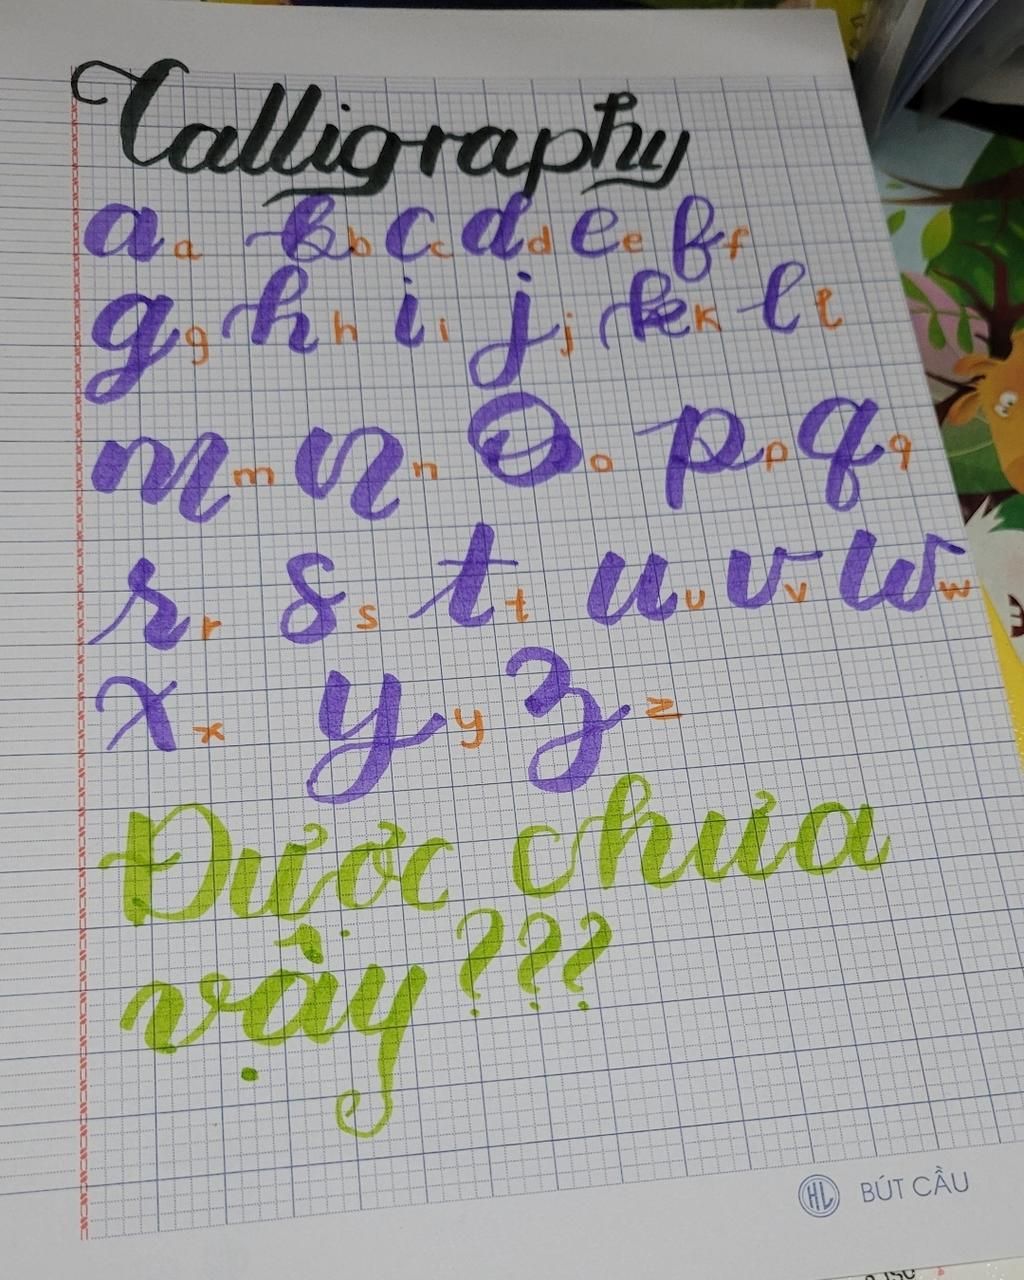 Calligraphy
a a b b c c d d e e f f
g g h h i i j j k k l l
m m n n o o p p q q
r r s s t t u u v v w w
x x y y z z
Được chưa
vậy ???
HL BÚT CẦU